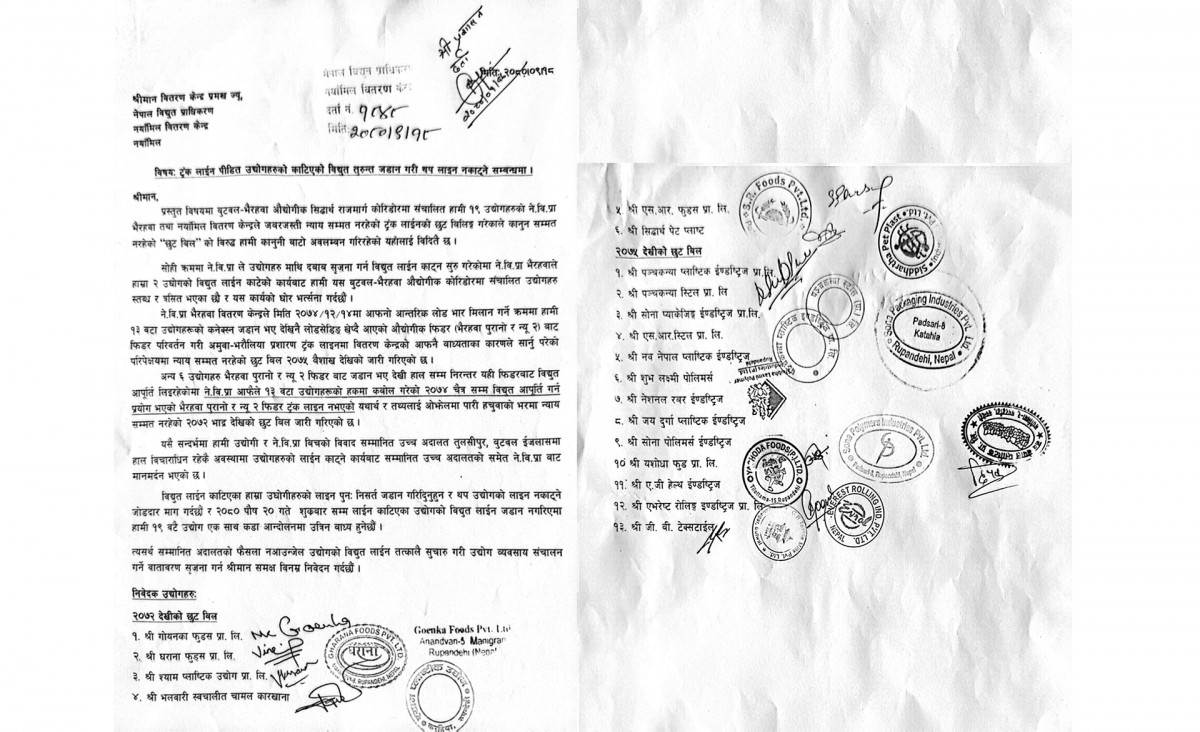 श्री प्रकाश त
दर्ता
मिति: २०८०।०९।१८
नेपाल विद्युत प्राधिकरण
नयाँमिल वितरण केन्द्र
दर्ता नं. १८४८
मिति: २०८०।९।१८
श्रीमान वितरण केन्द्र प्रमुख ज्यू,
नेपाल विद्युत प्राधिकरण
नयाँमिल वितरण केन्द्र
नयाँमिल
विषय: ट्रंक लाईन पीडित उद्योगहरुको काटिएको विद्युत तुरुन्त जडान गरी थप लाइन नकाट्ने सम्बन्धमा ।
श्रीमान,
प्रस्तुत विषयमा बुटवल-भैरहवा औद्योगीक सिद्धार्थ राजमार्ग कोरिडोरमा संचालित हामी १९ उद्योगहरुको ने.बि.प्रा
भैरहवा तथा नयाँमिल वितरण केन्द्रले जबरजस्ती न्याय सम्मत नरहेको ट्रंक लाईनको छुट बिलिङ्ग गरेकाले कानुन सम्मत
नरहेको "छुट बिल" को विरुद्ध हामी कानुनी बाटो अवलम्बन गरिरहेको यहाँलाई विदितै छ ।
सोही क्रममा ने.बि.प्रा ले उद्योगहरु माथि दबाब सृजना गर्न विद्युत लाईन काट्न सुरु गरेकोमा ने.बि.प्रा भैरहवाले
हाम्रा २ उद्योगको विद्युत लाईन काटेको कार्यबाट हामी यस बुटवल-भैरहवा औद्योगीक कोरिडोरमा संचालित उद्योगहरु
स्तब्ध र त्रसित भएका छौ र यस कार्यको घोर भर्त्सना गर्दछौं ।
ने.बि.प्रा भैरहवा वितरण केन्द्रले मिति २०७४/१२/१४मा आफनो आन्तरिक लोड भार मिलान गर्ने क्रममा हामी
१३ वटा उद्योगहरूको कनेक्सन जडान भए देखिनै लोडसेडिङ्ग खेप्दै आएको औद्योगीक फिडर (भैरहवा पुरानो र न्यू २) बाट
फिडर परिवर्तन गरी अमुवा-भरौलिया प्रशारण ट्रंक लाइनमा वितरण केन्द्रको आफनै बाध्यताका कारणले सार्नु परेको
परिपेक्ष्यमा न्याय सम्मत नरहेको छुट बिल २०७५ बैशाख देखिको जारी गरिएको छ ।
अन्य ६ उद्योगहरु भैरहवा पुरानो र न्यू २ फिडर बाट जडान भए देखी हाल सम्म निरन्तर यही फिडरबाट विद्युत
आपूर्ति लिइरहेकोमा ने.बि.प्रा आफैले १३ वटा उद्योगहरूको हकमा कबोल गरेको २०७४ चैत्र सम्म विद्युत आपूर्ति गर्न
प्रयोग भएको भैरहवा पुरानो र न्यू २ फिडर ट्रंक लाइन नभएको यथार्थ र तथ्यलाई ओझेलमा पारी हचुवाको भरमा न्याय
सम्मत नरहेको २०७२ भाद्र देखिको छुट बिल जारी गरिएको छ ।
यसै सन्दर्भमा हामी उद्योगी र ने.बि.प्रा बिचको विवाद सम्मानित उच्च अदालत तुलसीपुर, बुटवल इजलासमा
हाल विचाराधिन रहेकै अवस्थामा उद्योगहरुको लाईन काट्ने कार्यबाट सम्मानित उच्च अदालतको समेत ने.बि.प्रा बाट
मानमर्दन भएको छ ।
विद्युत लाईन काटिएका हाम्रा उघोगीहरुको लाइन पुन: निसर्त जडान गरिदिनुहुन र थप उद्योगको लाइन नकाट्ने
जोडदार माग गर्दछौ र २०८० पौष २० गते शुक्रबार सम्म लाईन काटिएका उद्योगको विद्युत लाईन जडान नगरिएमा
हामी १९ वटै उद्योग एक साथ कडा आन्दोलनमा उत्रिन बाध्य हुनेछौं ।
त्यसर्थ सम्मानित अदालतको फैसला नआउन्जेल उद्योगको विद्युत लाईन तत्कालै सुचारु गरी उद्योग व्यवसाय संचालन
गर्ने वातावरण सृजना गर्न श्रीमान समक्ष विनम्र निवेदन गर्दछौं ।
निवेदक उद्योगहरु:
२०७२ देखीको छुट बिल
१. श्री गोयनका फुडस प्रा. लि.
२. श्री घराना फुडस प्रा. लि.
३. श्री श्याम प्लाष्टिक उद्योग प्रा. लि.
४. श्री भलवारी स्वचालीत चामल कारखाना
GHARANA FOODS PVT. LTD.
घराना
RUPANDEHI, NEPAL
Goenka Foods Pvt. Ltd
Anandvan-5 Manigram
Rupandehi (Nepal
५. श्री एस.आर. फुडस प्रा. लि.
६. श्री सिद्धार्थ पेट प्लाष्ट
२०७५ देखीको छुट बिल
१. श्री पञ्चकन्या प्लाष्टिक ईण्डष्ट्रिज प्रा.लि.
२. श्री पञ्चकन्या स्टिल प्रा. लि
३. श्री सोना प्याकेजिङ्ग ईण्डष्ट्रिज प्रा.लि.
४. श्री एस.आर.स्टिल प्रा. लि.
५. श्री नव नेपाल प्लाष्टिक ईण्डष्ट्रिज
६. श्री शुभ लक्ष्मी पोलिमर्स
७. श्री नेशनल रबर ईण्डष्ट्रिज
८. श्री जय दुर्गा प्लाष्टिक ईण्डष्ट्रिज
९. श्री सोना पोलिमर्स ईण्डष्ट्रिज
१० श्री यशोधा फुड प्रा. लि.
११. श्री ए.जी हेल्थ ईण्डष्ट्रिज
१२. श्री एभरेष्ट रोलिङ्ग इण्डष्ट्रिज प्रा. लि
१३. श्री जी. बी. टेक्सटाईल
S.R. Foods Pvt.Ltd.
Siddhartha Pet Plast
Sona Packaging Industries Pvt. Ltd.
Padsari-8
Katahia
Rupandehi, Nepal
Sona Polymers Industries Pvt. Ltd.
FOODS(P)LTD.
EVEREST ROLLING IND. PVT. LTD.